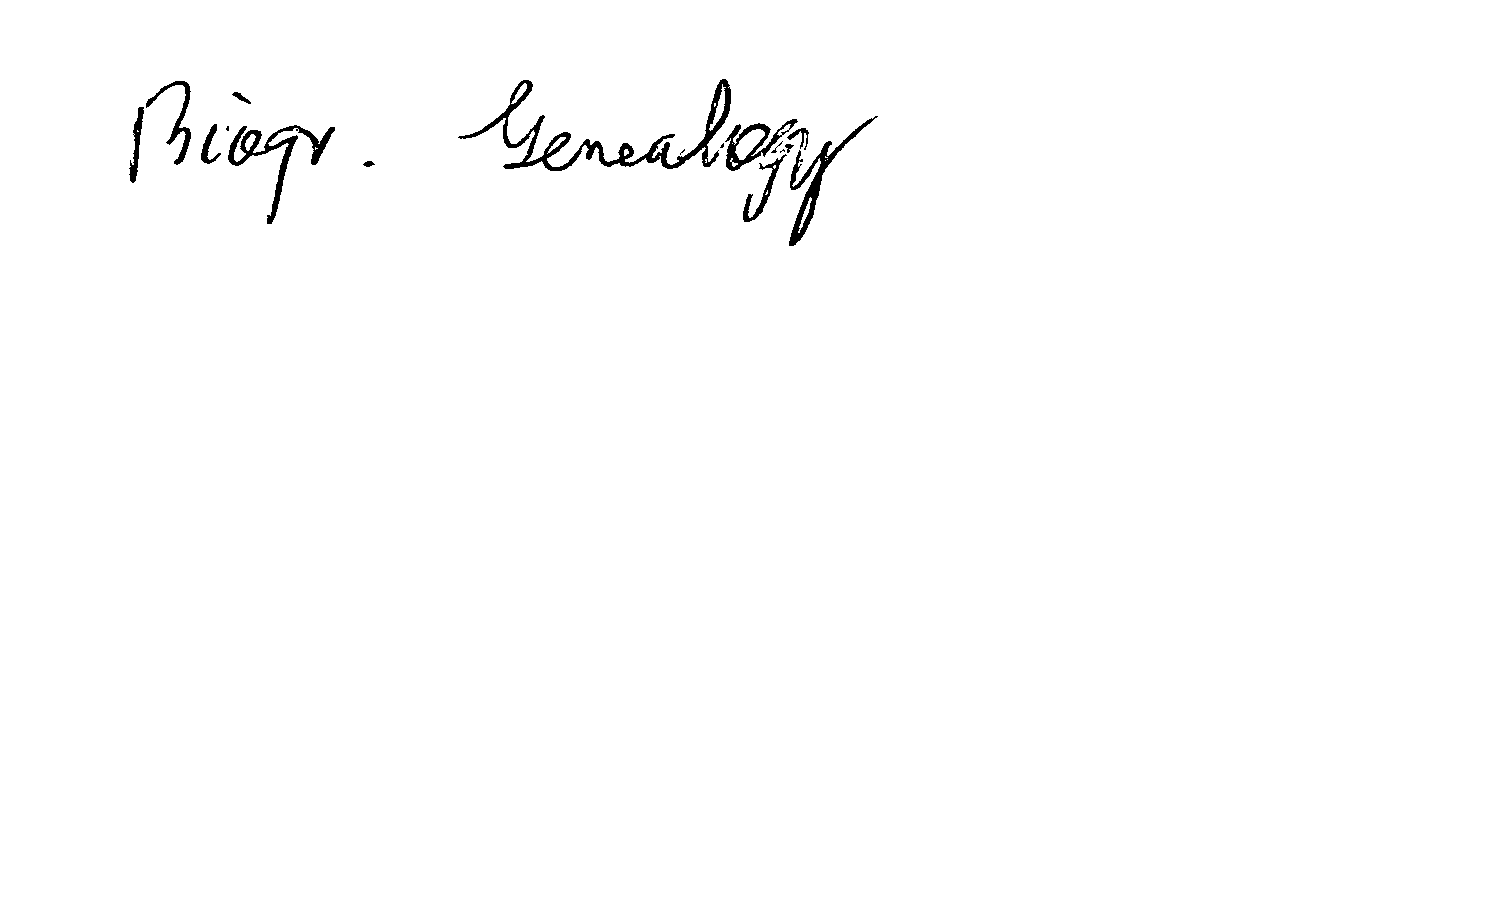 Biogr. Genealogy